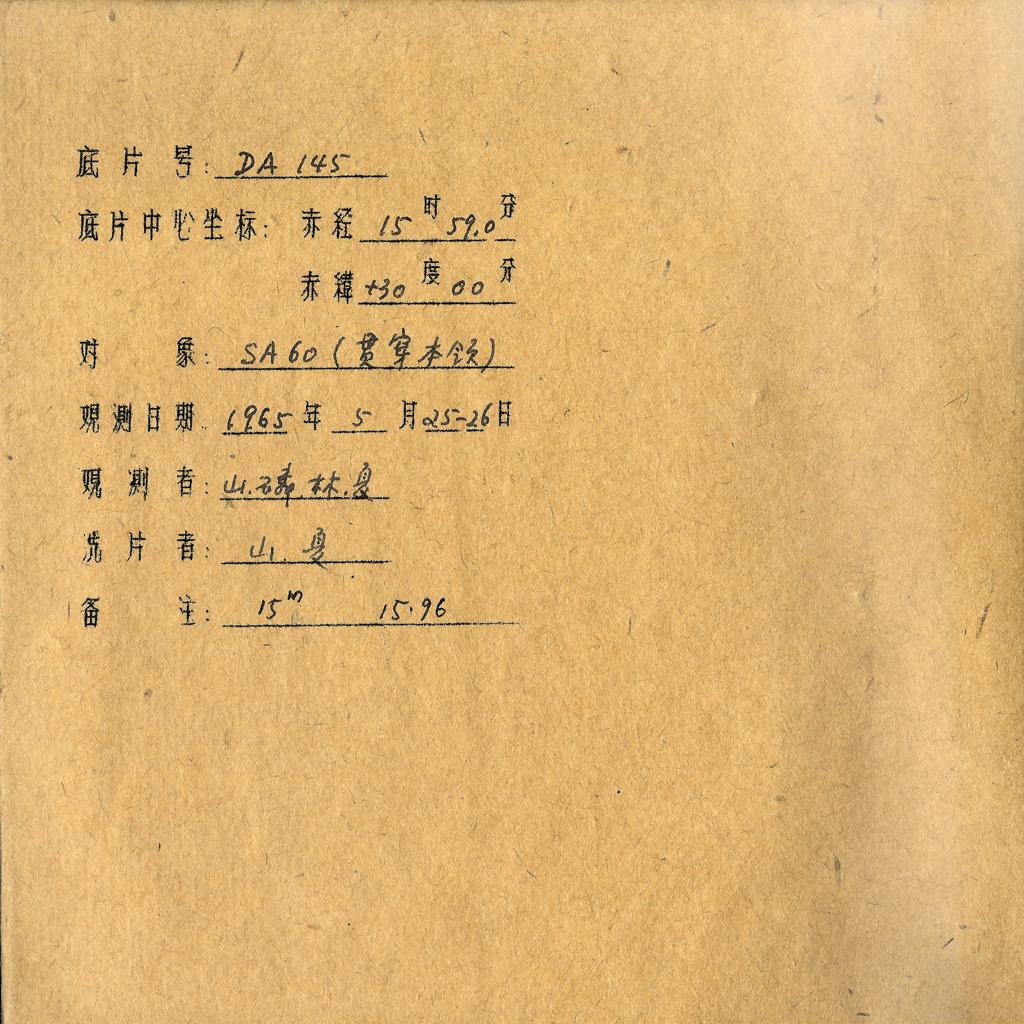 底片号: DA 145
底片中心坐标: 赤经 15 时 59.0 分
赤緯 +30 度 00 分
对象: SA60 (贯穿本领)
观测日期 1965 年 5 月 25-26 日
观测者: 山. 林. 夏
洗片者: 山. 夏
备注: 15m 15.96